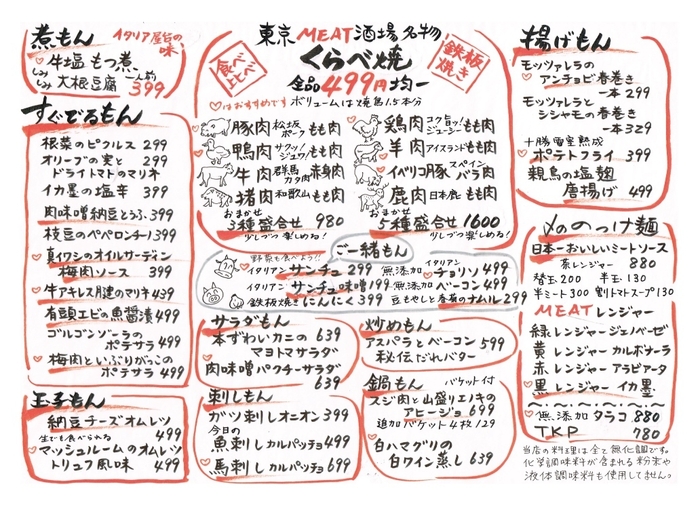 煮もん
イタリア屋台の味
♡牛塩もつ煮
しみしみ大根豆腐 一人前 399
すぐでるもん
根菜のピクルス 299
オリーブの実と 299
ドライトマトのマリネ
イカ墨の塩辛 399
肉味噌納豆とうふ 399
枝豆のペペロンチーノ 399
♡真イワシのオイルサーディン
梅肉ソース 399
♡牛アキレス腱のマリネ 439
有頭エビの魚醤漬 499
ゴルゴンゾーラの
ポテサラ 499
♡梅肉といぶりがっこの
ポテサラ 499
玉子もん
納豆チーズオムレツ
生でも食べられる 499
♡マッシュルームのオムレツ
トリュフ風味 499
東京MEAT酒場名物
くらべ焼
全品499円均一
食べ比べ
鉄板焼き
♡はおすすめです ボリュームは焼鳥1.5本分
♡豚肉 松坂ポーク もも肉
♡鴨肉 サクッ!ジュワ! もも肉
牛肉 群馬カタ肉 赤身肉
♡猪肉 和歌山もも肉
鶏肉 コク旨ッ!ジューシー もも肉
♡羊肉 アイスランドもも肉
♡イベリコ豚 スペインバラ肉
♡鹿肉 日本鹿もも肉
おまかせ
3種盛合せ 980
少しづつ楽しめる!
おまかせ
5種盛合せ 1600
少しづつ楽しめる!
ご一緒もん
野菜も食べよう!!
イタリアン サンチュ 299
イタリアン サンチュ味噌 199
♡鉄板焼きにんにく 399
無添加 イタリアン チョリソ 499
無添加 ベーコン 499
豆もやしと春菊のナムル 299
サラダもん
♡本ずわいカニの 639
マヨトマサラダ
肉味噌パクチーサラダ
639
炒めもん
アスパラとベーコン 599
秘伝だれバター
刺しもん
ガツ刺しオニオン 399
今日の
魚刺しカルパッチョ 499
♡馬刺しカルパッチョ 699
鍋もん
バケット付
スジ肉と山盛りエノキの
アヒージョ 699
追加バケット4枚 129
♡白ハマグリの
白ワイン蒸し 639
揚げもん
モッツァレラの
アンチョビ春巻き
一本 299
モッツァレラと
シシャモの春巻き
一本 329
十勝雪室熟成
♡ポテトフライ 399
親鳥の塩麹
唐揚げ 499
〆ののっけ麺
日本一おいしいミートソース
茶レンジャー 880
替玉 200 半玉 130
半ミート 300 割トマトスープ 130
MEATレンジャー
緑レンジャー ジェノベーゼ
黄レンジャー カルボナーラ
赤レンジャー アラビアータ
♡黒レンジャー イカ墨
♡無添加タラコ 880
TKP 780
当店の料理は全て無化調です。
化学調味料が含まれる粉末や
液体調味料も使用してません。